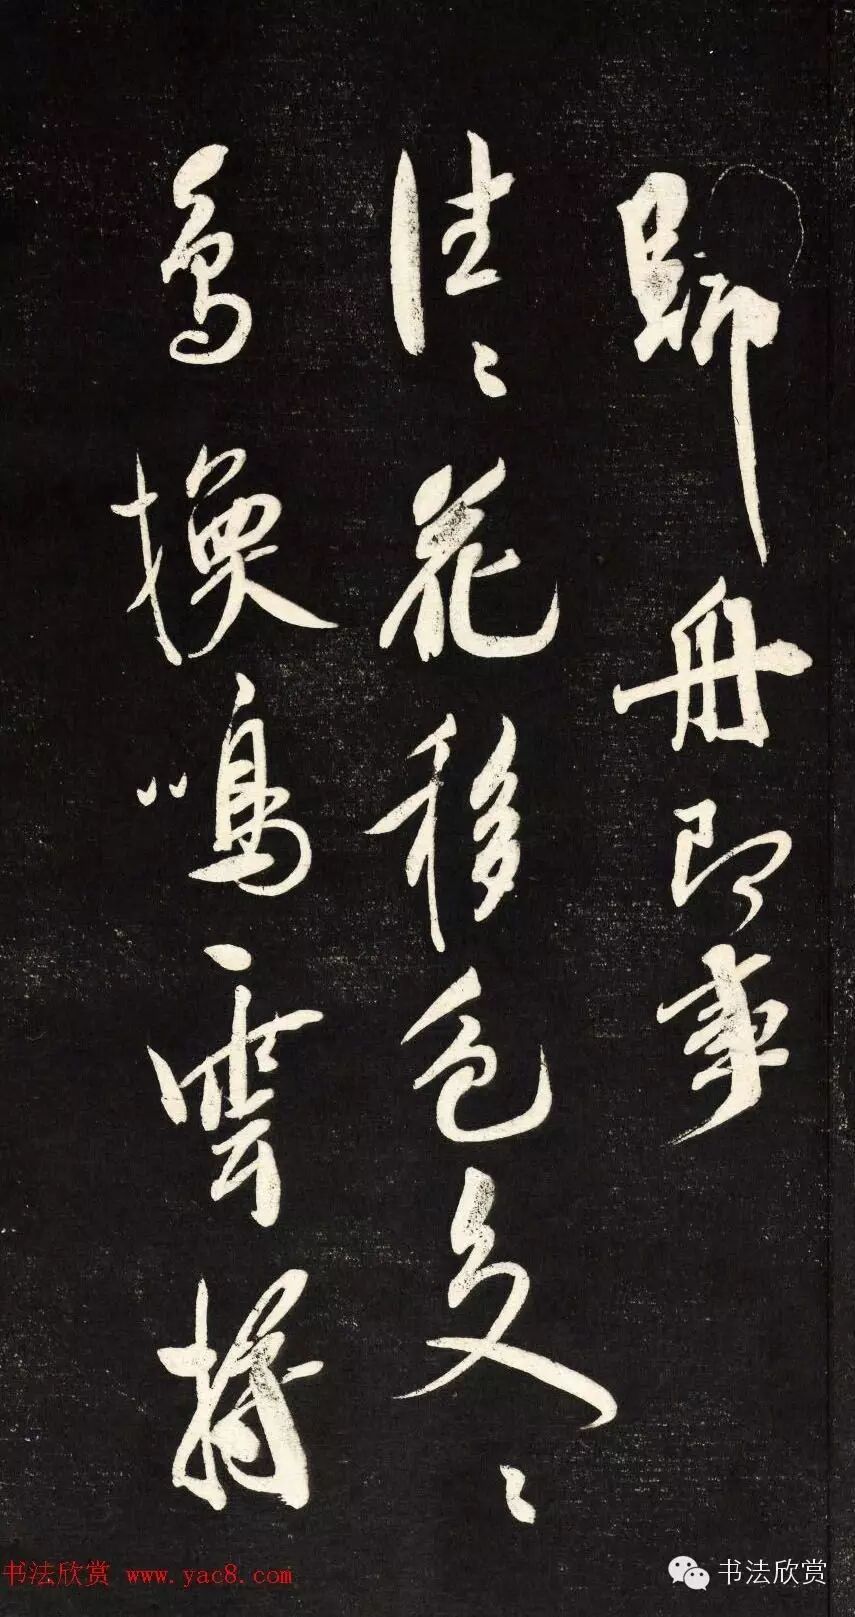 歸舟即事
往々花移色処々
鳥換鳴雲将
书法欣赏 www.yac8.com
书法欣赏